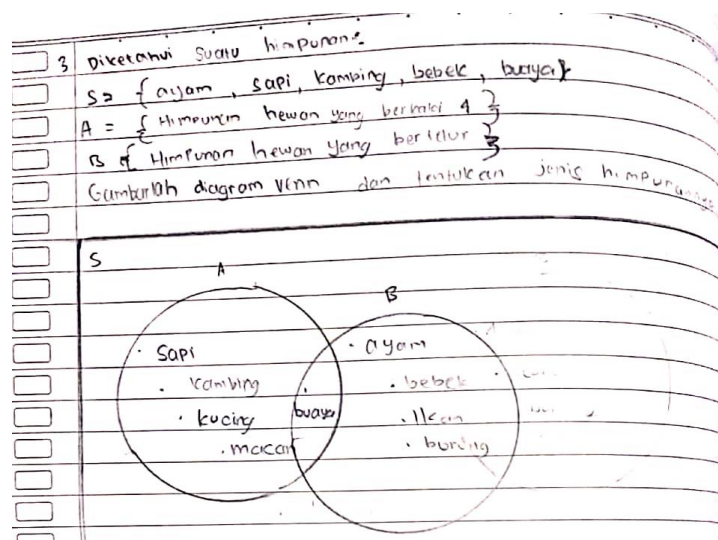 3 Diketahui Suatu himpunan:
S = { ayam, sapi, kambing, bebek, buaya}
A = { Himpunan hewan yang berkaki 4 }
B = { Himpunan hewan yang bertelur }
Gambarlah diagram venn dan tentukan jenis himpunannya
S
A
B
· Sapi · ayam
· kambing · bebek
· kucing · buaya · Ikan
· macan · burung